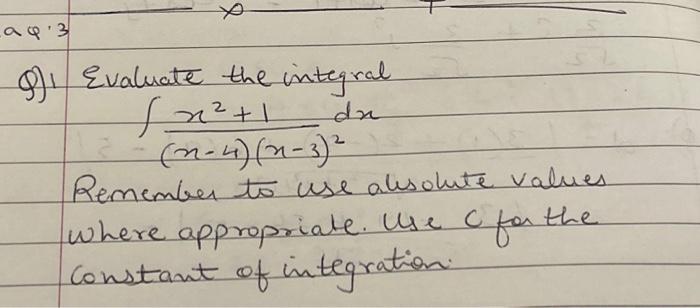 a q.3
Q)1 Evaluate the integral
∫ x² + 1 dx
(x-4)(x-3)²
Remember to use absolute values
where appropriate. Use C for the
constant of integration.